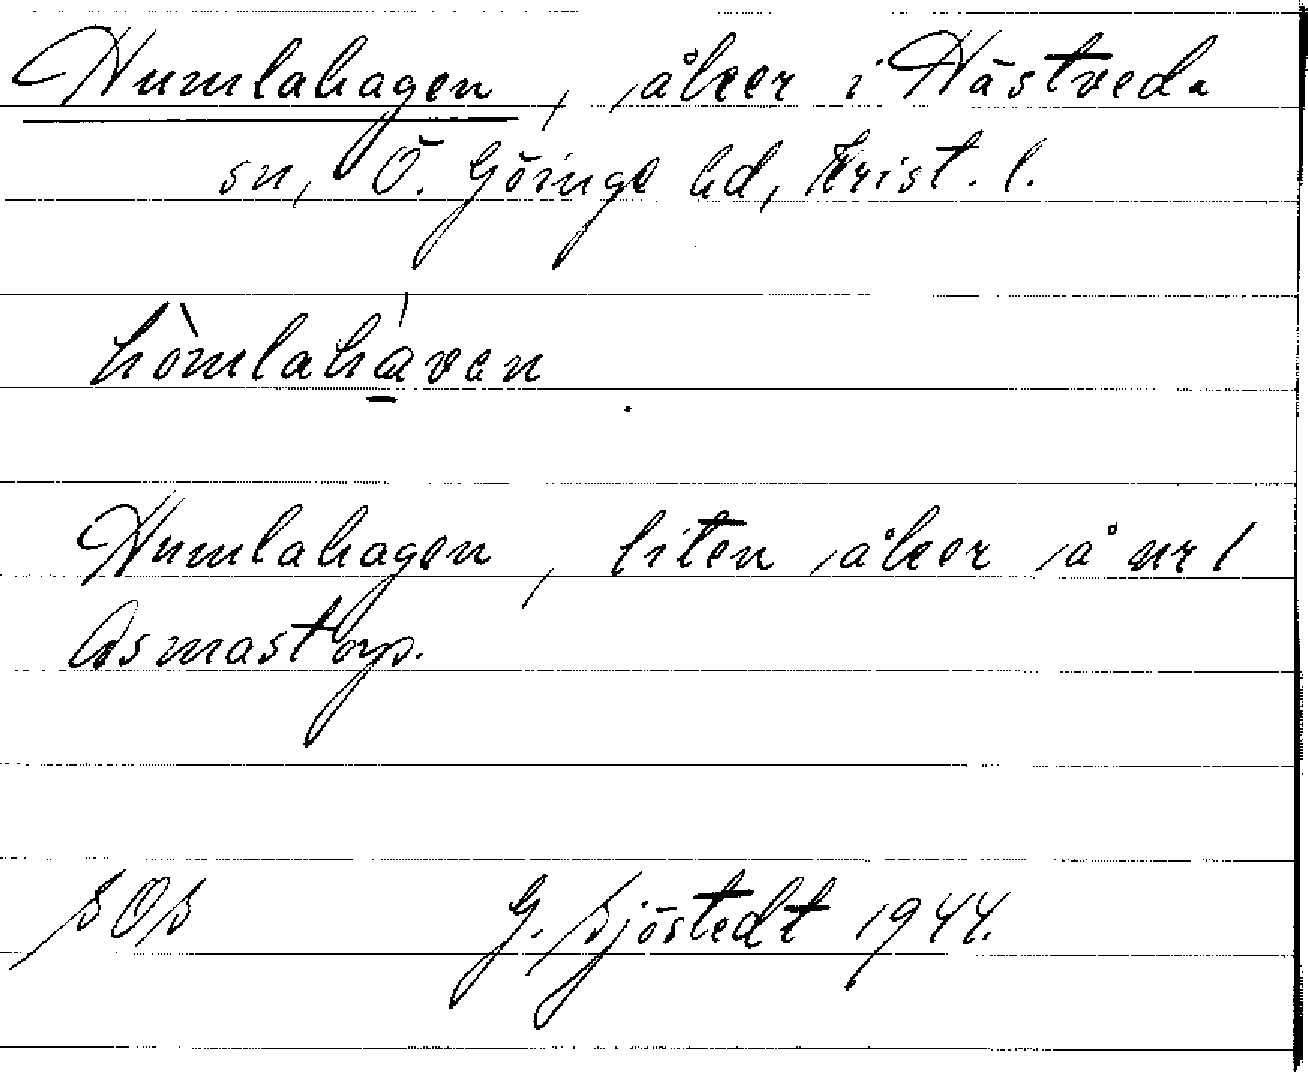 Humlahagen, åker i Hästveda
sn, Ö. Göinge hd, Krist. l.
hòmlahá̱ven
Humlahagen, liten åker å nr 1
Asmastorp.
SOS G. Sjöstedt 1944.